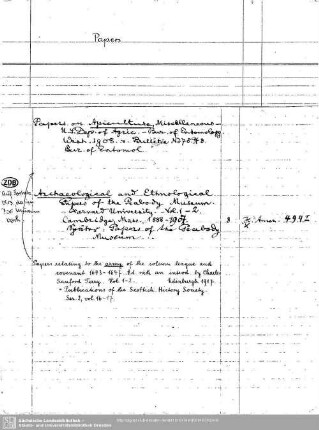 Papers
Papers on Apiculture, Miscellaneous -
U.S. Dep. of Agric. - Bur. of Entomology.
Wash. 1908. = Bulletin N 75
Bur. of Entomol.
Archaeological and Ethnological
Papers of the Peabody Museum.
Harvard University. Vol. 1-2.
Cambridge, Mass. 1888-1907.
Papers of the Peabody
Museum
8
Amer. 499
Papers relating to the army of the solemn league and
covenant 1643-1647. Ed. with an introd. by Charles
Sanford Terry. Vol. 1-2. Edinburgh 1917.
= Publications of the Scottish History Society.
Ser. 2, vol. 16-17.
Sächsische Landesbibliothek -
Staats- und Universitätsbibliothek Dresden